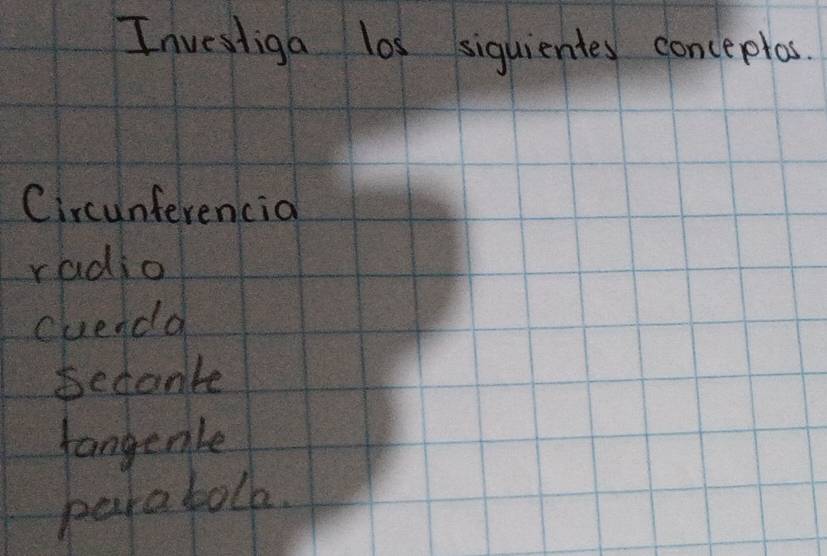 Investiga los siguientes conceptos.
Circunferencia
radio
cuerda
secante
tangente
parabola.